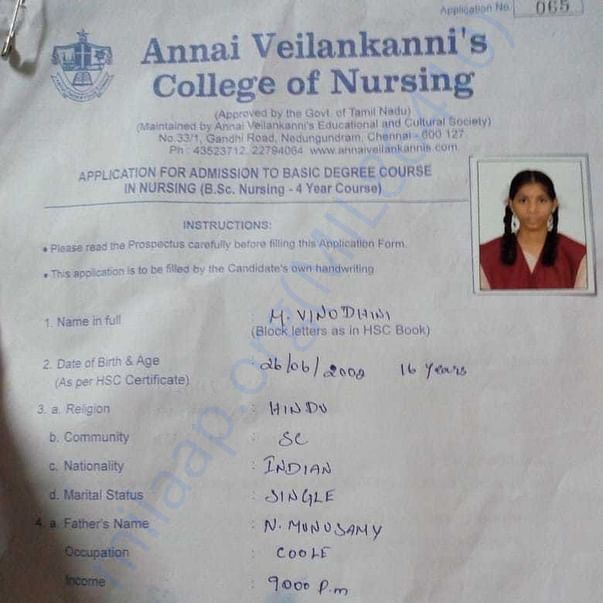 Application No. 065
Annai Veilankanni's
College of Nursing
(Approved by the Govt. of Tamil Nadu)
(Maintained by Annai Veilankanni's Educational and Cultural Society)
No.33/1, Gandhi Road, Nedungundram, Chennai - 600 127.
Ph : 43523712, 22794064 www.annaiveilankannis.com
APPLICATION FOR ADMISSION TO BASIC DEGREE COURSE
IN NURSING (B.Sc. Nursing - 4 Year Course)
INSTRUCTIONS:
• Please read the Prospectus carefully before filling this Application Form.
• This application is to be filled by the Candidate's own handwriting
1. Name in full : M. VINODHINI
(Block letters as in HSC Book)
2. Date of Birth & Age : 26/06/2000 16 Years
(As per HSC Certificate)
3. a. Religion : HINDU
b. Community : SC
c. Nationality : INDIAN
d. Marital Status : SINGLE
4. a. Father's Name : N. MUNUSAMY
Occupation : COOLE
Income : 9000 P.m